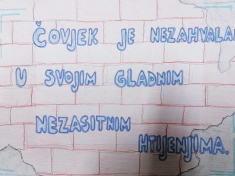 ČOVJEK JE NEZAHVALAN
U SVOJIM GLADNIM
NEZASITNIM
HTIJENJIMA.